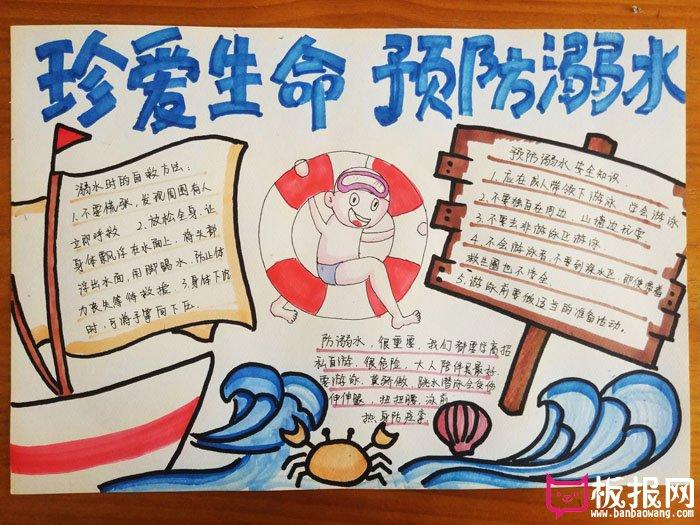 珍爱生命 预防溺水
溺水时的自救方法:
1.不要慌张,发现周围有人
立即呼救 2.放松全身,让
身体飘浮在水面上,将头部
浮出水面,用脚踢水,防止体
力丧失等待救援.3.身体下沉
时,可将手掌向下压.
预防溺水安全知识.
1.应在成人带领下游泳 学会游泳
2.不要独自在河边、山塘边玩耍
3.不要去非游泳区游泳
4.不会游泳者,不要到深水区,即使带着
救生圈也不安全.
5.游泳前要做适当的准备活动.
防溺水,很重要,我们都要
私自游,很危险,大人陪伴是最好
要游泳,莫 做,跳水潜泳会受伤
伸伸腿,扭扭腰,泳前
热身防痉挛
板报网
www.banbaowang.com